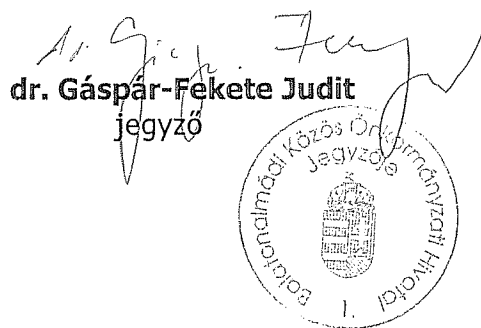 dr. Gáspár-Fekete Judit
jegyző
Balatonalmádi Közös Önkormányzati Hivatal
Jegyzője
1.